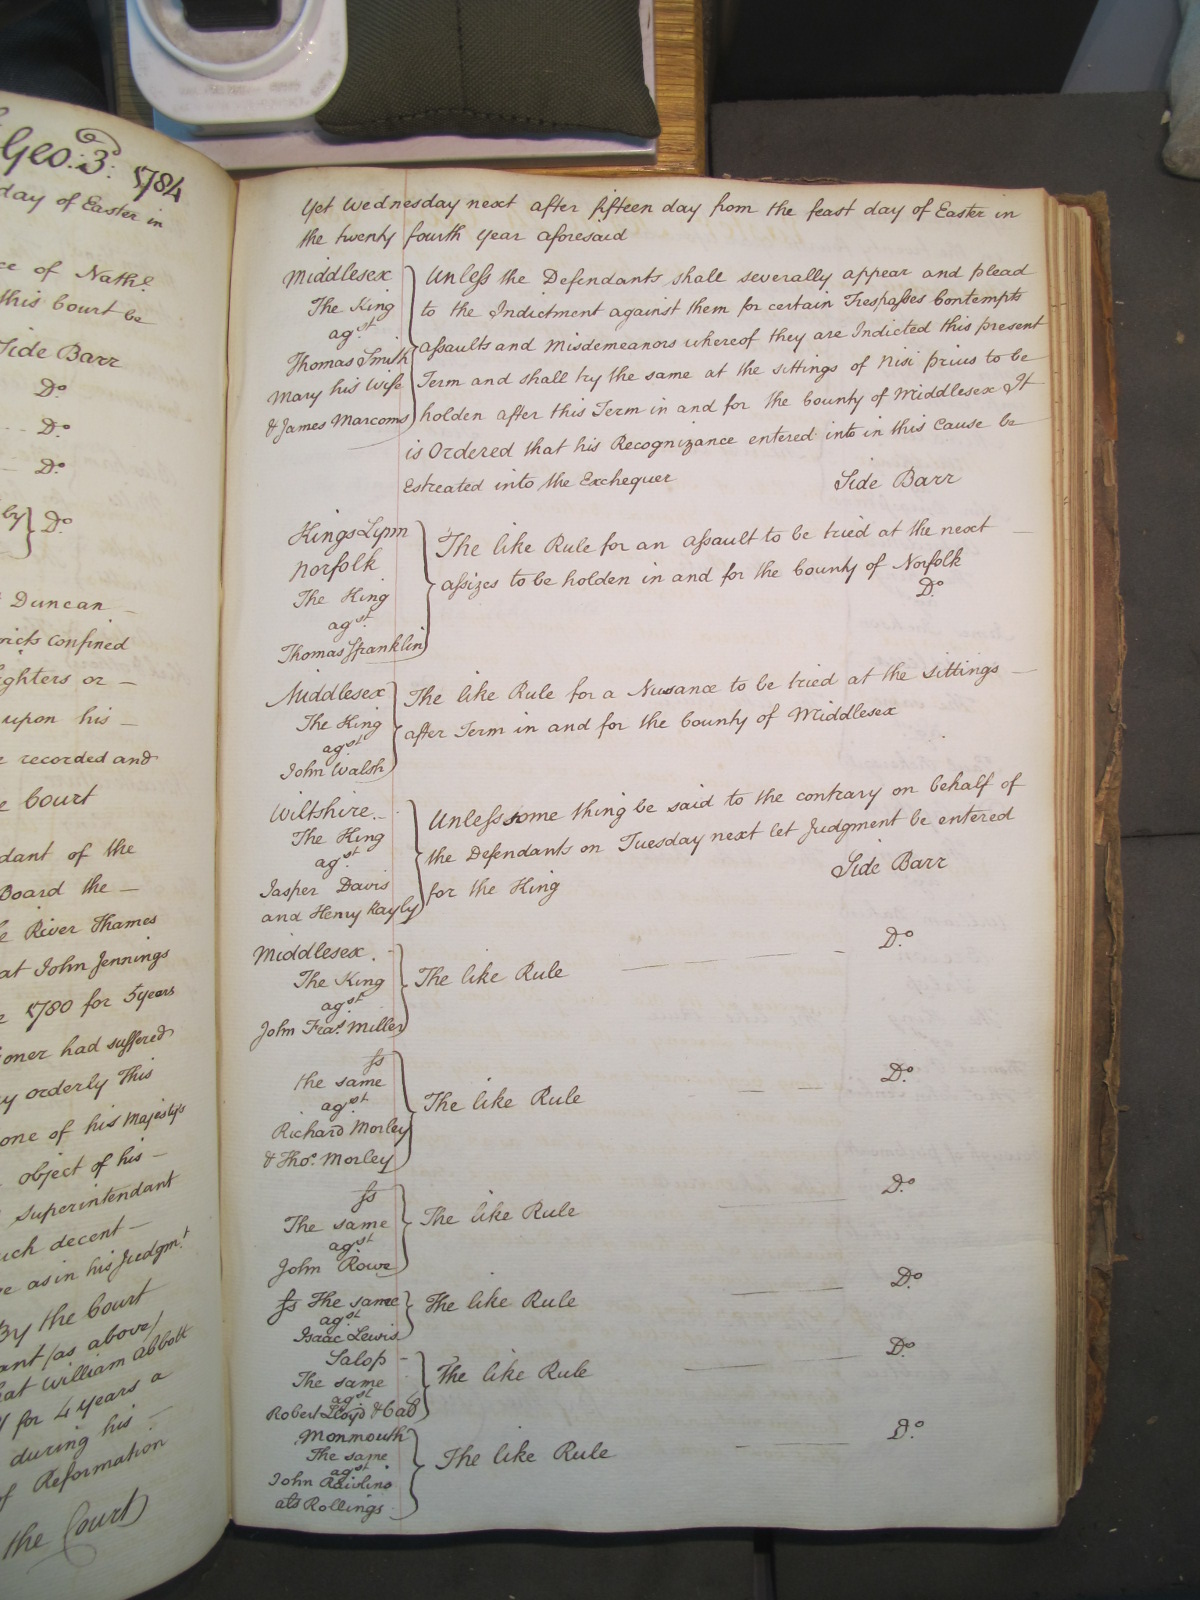 Geo: 3: 1784
day of Easter in
ce of Nath.l
this Court be
Side Barr
D.o
D.o
D.o
by } D.o
Duncan
victs confined
ighters or
upon his
recorded and
e Court
dant of the
Board the
e River Thames
at John Jennings
1780 for 5 years
oner had suffered
y orderly This
one of his Majesty's
object of his
Superintendant
uch decent
e as in his Judgm.t
By the Court
ant (as above)
hat William Abbott
for 4 years a
during his
of Reformation
the Court
Yet Wednesday next after fifteen day from the feast day of Easter in
the twenty fourth Year aforesaid
Middlesex
The King
ag.st
Thomas Smith
Mary his Wife
& James Marcoms
Unless the Defendants shall severally appear and plead
to the Indictment against them for certain Trespasses Contempts
Assaults and Misdemeanors whereof they are Indicted this present
Term and shall try the same at the sittings of Nisi prius to be
holden after this Term in and for the County of Middlesex It
is Ordered that his Recognizance entered into in this Cause be
Estreated into the Exchequer Side Barr
Kings Lynn
Norfolk
The King
ag.st
Thomas Franklin
The like Rule for an Assault to be tried at the next
Assizes to be holden in and for the County of Norfolk
D.o
Middlesex
The King
ag.st
John Walsh
The like Rule for a Nusance to be tried at the Sittings
after Term in and for the County of Middlesex
Wiltshire
The King
ag.st
Jasper Davis
and Henry Rayly
Unless some thing be said to the contrary on behalf of
the Defendants on Tuesday next let Judgment be entered
for the King Side Barr
Middlesex
The King
ag.st
John Fra.s Miller
The like Rule D.o
ss
the same
ag.st
Richard Morley
& Tho.s Morley
The like Rule D.o
ss
The same
ag.st
John Rowe
The like Rule D.o
ss The same
ag.st
Isaac Lewis
The like Rule D.o
Salop
The same
ag.st
Robert Lloyd &
The like Rule D.o
Monmouth
The same
ag.st
John Rawlins
als Rollings
The like Rule D.o